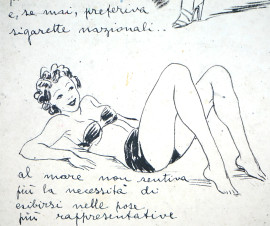 e, se mai, preferiva
sigarette nazionali..
al mare non sentiva
più la necessità di
esibirsi nelle pose
più rappresentative